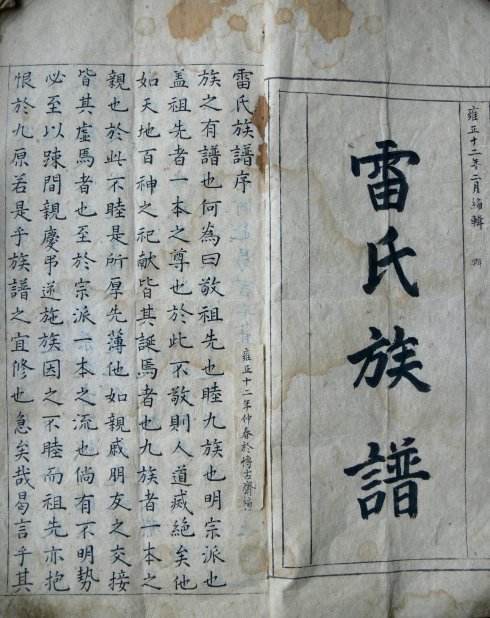 雍正十二年二月編輯
雷氏族譜
雷氏族譜序
雍正十二年仲春於博古齋
族之有譜也何為曰敬祖先也睦九族也明宗派也
盖祖先者一本之尊也於此不敬則人道滅絕矣他
如天地百神之祀献皆其誕焉者也九族者一本之
親也於此不睦是所厚先薄他如親戚朋友之交接
皆其虛焉者也至於宗派一本之流也倘有不明勢
必至以踈間親慶弔逆施族因之不睦而祖先亦抱
恨於九原若是乎族譜之宜修也急矣哉曷言乎其